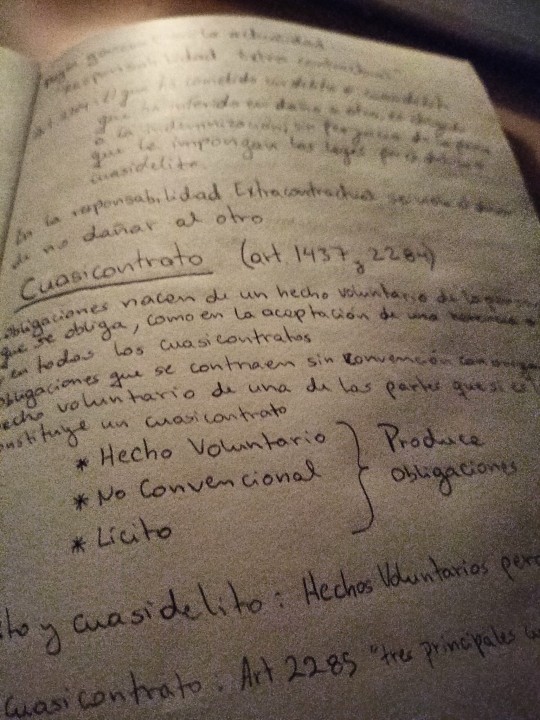 la actualidad
"responsabilidad Extracontractual"
que ha cometido un delito o cuasidelito
que ha inferido un daño a otro, es obligado
a la indemnización sin perjuicio de la pena
que le impongan las leyes por
cuasidelito
En la responsabilidad Extracontractual
de no dañar al otro
Cuasicontrato (art 1437 y 2284)
obligaciones nacen de un hecho voluntario de la
que se obliga, como en la aceptación de una herencia o
y en todos los cuasicontratos
obligaciones que se contraen sin convención
hecho voluntario de una de las partes que si es
constituye un cuasicontrato
* Hecho Voluntario } Produce
* No Convencional obligaciones
* Lícito
ito y cuasidelito : Hechos Voluntarios pero
Cuasicontrato : Art 2285 "tres principales